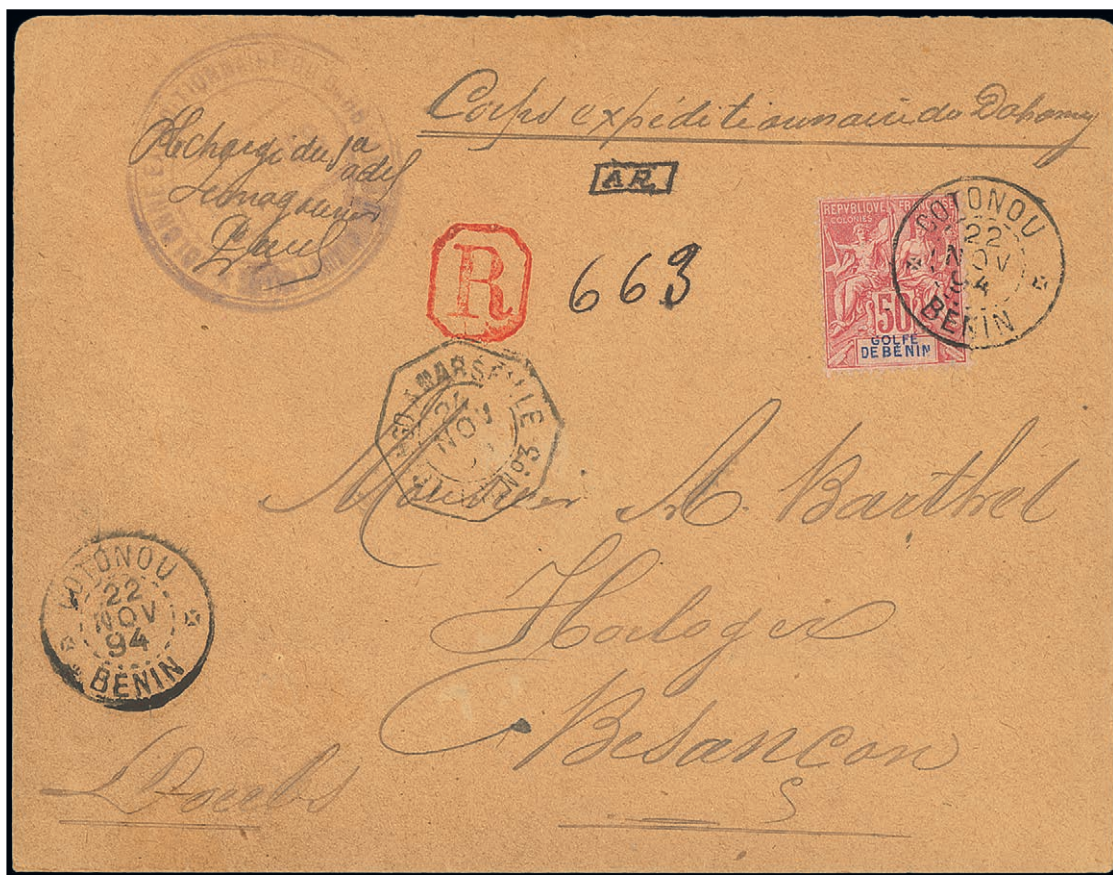 Corps expéditionnaire du Dahomey
Le chargé du
A.R.
R
663
REPUBLIQUE FRANÇAISE
COLONIES
50
GOLFE
DE BÉNIN
COTONOU
22
NOV
94
BENIN
MARSEILLE
24
NOV
Nº3
Monsieur A. Barthel
Horloger
Besançon
COTONOU
22
NOV
94
BENIN
Doubs